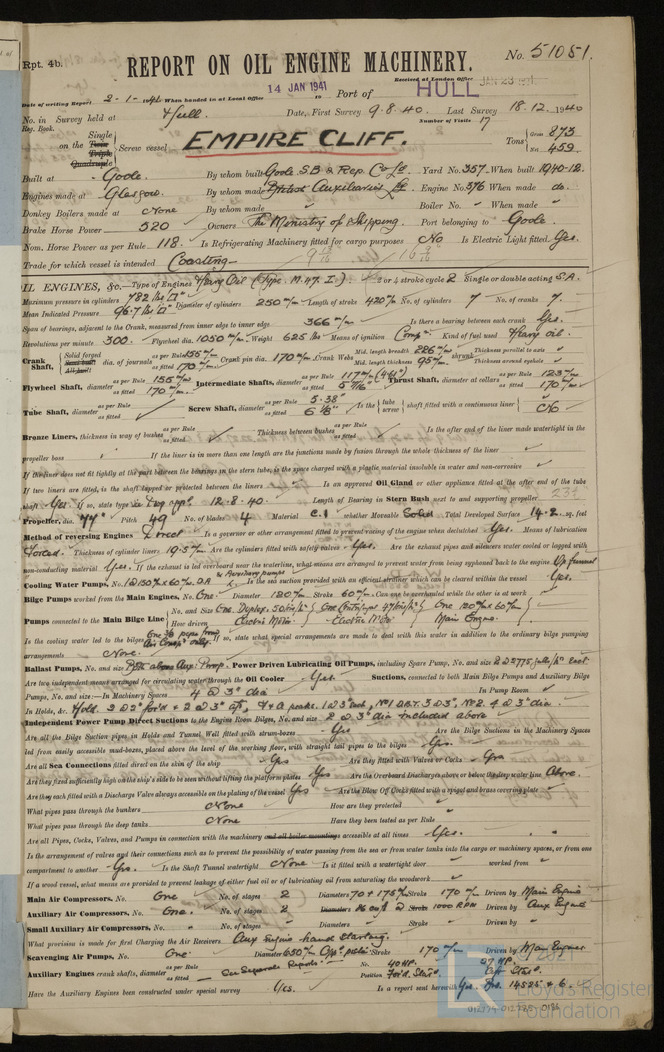 Rpt. 4b.
REPORT ON OIL ENGINE MACHINERY.
No. 51051.
Received at London Office JAN 23 1941
14 JAN 1941
Date of writing Report 2-1-1941 When handed in at Local Office 19 Port of HULL
No. in Survey held at Hull. Date, First Survey 9.8.40. Last Survey 18.12.1940
Reg. Book. Number of Visits 17
Single
on the Twin Screw vessel EMPIRE CLIFF. Tons Gross 873
Triple
Quadruple Net 459.
Built at Goole. By whom built Goole S.B. & Rep. Co Ld Yard No. 357. When built 1940-12.
Engines made at Glasgow. By whom made British Auxiliaries Ld. Engine No. 376 When made do.
Donkey Boilers made at None By whom made Boiler No. When made
Brake Horse Power 520 Owners The Ministry of Shipping. Port belonging to Goole.
Nom. Horse Power as per Rule 118. Is Refrigerating Machinery fitted for cargo purposes No Is Electric Light fitted Yes.
Trade for which vessel is intended Coasting
OIL ENGINES, &c.—Type of Engines Heavy Oil (Type M.47. I.) 2 or 4 stroke cycle 2 Single or double acting S.A.
Maximum pressure in cylinders 782 lbs/□" Diameter of cylinders 250 m/m Length of stroke 420 m/m No. of cylinders 7 No. of cranks 7.
Mean Indicated Pressure 96.7 lbs/□"
Span of bearings, adjacent to the Crank, measured from inner edge to inner edge 366 m/m Is there a bearing between each crank Yes.
Revolutions per minute 300. Flywheel dia. 1050 m/m Weight 625 lbs Means of ignition Compn. Kind of fuel used Heavy oil.
Crank Shaft, Solid forged dia. of journals as per Rule 155 m/m as fitted 170 m/m Crank pin dia. 170 m/m Crank Webs Mid. length breadth 226 m/m Mid. length thickness 95 m/m shrunk Thickness parallel to axis Thickness around eyehole
Flywheel Shaft, diameter as per Rule 155 m/m as fitted 170 m/m Intermediate Shafts, diameter as per Rule 117 m/m as fitted 5 7/16" Thrust Shaft, diameter at collars as per Rule 123 m/m as fitted 170 m/m
Tube Shaft, diameter as per Rule as fitted Screw Shaft, diameter as per Rule 5.38" as fitted 6 1/8" Is the tube screw shaft fitted with a continuous liner No
Bronze Liners, thickness in way of bushes as per Rule as fitted Thickness between bushes as per Rule as fitted Is the after end of the liner made watertight in the
propeller boss If the liner is in more than one length are the junctions made by fusion through the whole thickness of the liner
If the liner does not fit tightly at the part between the bearings in the stern tube, is the space charged with a plastic material insoluble in water and non-corrosive
If two liners are fitted, is the shaft lapped or protected between the liners Is an approved Oil Gland or other appliance fitted at the after end of the tube
shaft Yes If so, state type 12.8.40. Length of Bearing in Stern Bush next to and supporting propeller 23½
Propeller, dia. 77" Pitch 49 No. of blades 4 Material C.I whether Moveable Solid Total Developed Surface 14.2 sq. feet
Method of reversing Engines Direct Is a governor or other arrangement fitted to prevent racing of the engine when declutched Yes. Means of lubrication
Forced. Thickness of cylinder liners 19.5 m/m Are the cylinders fitted with safety valves Yes. Are the exhaust pipes and silencers water cooled or lagged with
non-conducting material Yes. If the exhaust is led overboard near the waterline, what means are arranged to prevent water from being syphoned back to the engine Up funnel
Cooling Water Pumps, No. 1 2/150 m/m x 60 m/m D.A. & Auxiliary pumps Is the sea suction provided with an efficient strainer which can be cleared within the vessel Yes.
Bilge Pumps worked from the Main Engines, No. One Diameter 120 m/m Stroke 60 m/m Can one be overhauled while the other is at work
Pumps connected to the Main Bilge Line No. and Size One. Duplex. 50 t/hr. One Centrifugal 47 t/hr. One 120 m/m x 60 m/m
How driven Electric Motor. Electric Motor. Main Engine.
Is the cooling water led to the bilges One ¾ pipes from Air Compr. only. If so, state what special arrangements are made to deal with this water in addition to the ordinary bilge pumping
arrangements None.
Ballast Pumps, No. and size Power Driven Lubricating Oil Pumps, including Spare Pump, No. and size 2 @ 2775 galls/hr each
Are two independent means arranged for circulating water through the Oil Cooler Yes. Suctions, connected to both Main Bilge Pumps and Auxiliary Bilge
Pumps, No. and size:—In Machinery Spaces 4 @ 3" dia In Pump Room
In Holds, &c. Hold. 2 @ 2" for'd & 2 @ 3" aft,
Independent Power Pump Direct Suctions to the Engine Room Bilges, No. and size 2 @ 3" dia included above
Are all the Bilge Suction pipes in Holds and Tunnel Well fitted with strum-boxes Yes Are the Bilge Suctions in the Machinery Spaces
led from easily accessible mud-boxes, placed above the level of the working floor, with straight tail pipes to the bilges Yes.
Are all Sea Connections fitted direct on the skin of the ship Yes Are they fitted with Valves or Cocks Yes
Are they fixed sufficiently high on the ship's side to be seen without lifting the platform plates Yes Are the Overboard Discharges above or below the deep water line Above.
Are they each fitted with a Discharge Valve always accessible on the plating of the vessel Yes Are the Blow Off Cocks fitted with a spigot and brass covering plate
What pipes pass through the bunkers None How are they protected
What pipes pass through the deep tanks None Have they been tested as per Rule
Are all Pipes, Cocks, Valves, and Pumps in connection with the machinery and all boiler mountings accessible at all times Yes.
Is the arrangement of valves and their connections such as to prevent the possibility of water passing from the sea or from water tanks into the cargo or machinery spaces, or from one
compartment to another Yes. Is the Shaft Tunnel watertight None Is it fitted with a watertight door worked from
If a wood vessel, what means are provided to prevent leakage of either fuel oil or of lubricating oil from saturating the woodwork
Main Air Compressors, No. One No. of stages 2 Diameters 70 + 175 m/m Stroke 170 m/m Driven by Main Engine
Auxiliary Air Compressors, No. One. No. of stages 2 Diameters 16 cu ft @ Stroke 1000 RPM Driven by Aux Engine
Small Auxiliary Air Compressors, No. No. of stages Diameters Stroke Driven by
What provision is made for first Charging the Air Receivers Aux Engine hand starting.
Scavenging Air Pumps, No. One Diameter 650 m/m Stroke 170 m/m Driven by Main Engines
Auxiliary Engines crank shafts, diameter as per Rule as fitted See Separate Reports. No. 40 HP. 27 HP.
Position For'd Starb. Aft Starb.
Have the Auxiliary Engines been constructed under special survey Yes. Is a report sent herewith Yes.
© 2021
Lloyd's Register
Foundation